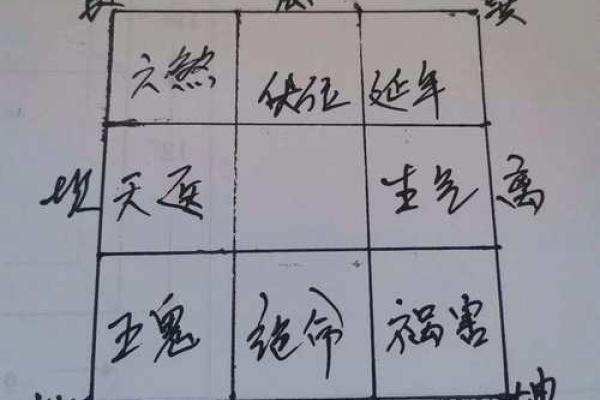 六煞 伏位 延年
坎 天医 生气 离
五鬼 绝命 祸害